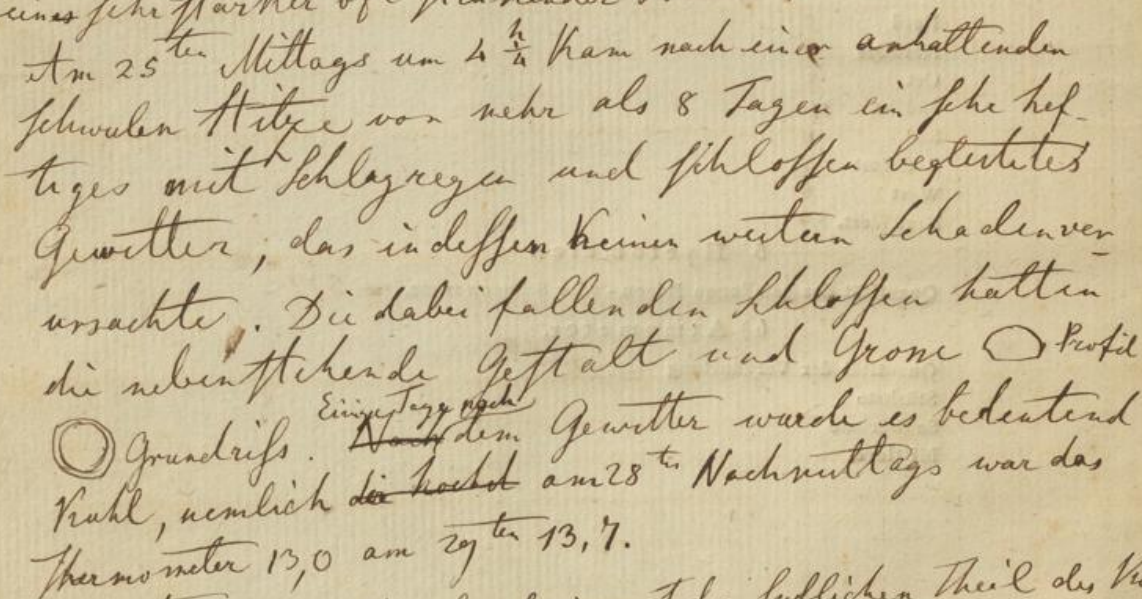 eines sehr starker
Am 25ten Mittags um 4 h/4 kam nach einer anhaltenden
schwulen Hitze von mehr als 8 Tagen ein sehr hef-
tiges mit Schlagregen und Schlossen begleitetes
Gewitter, das indessen keinen weitern Schaden ver-
ursachte. Die dabei fallenden Schlossen hatten
die nebenstehende Gestalt und Grosse Profil
Grundriss. Einige Tage nach dem Gewitter wurde es bedeutend
Kuhl, nemlich am 28ten Nachmittags war das
Thermometer 13,0 am 29ten 13,7.
sudlichen Theil des